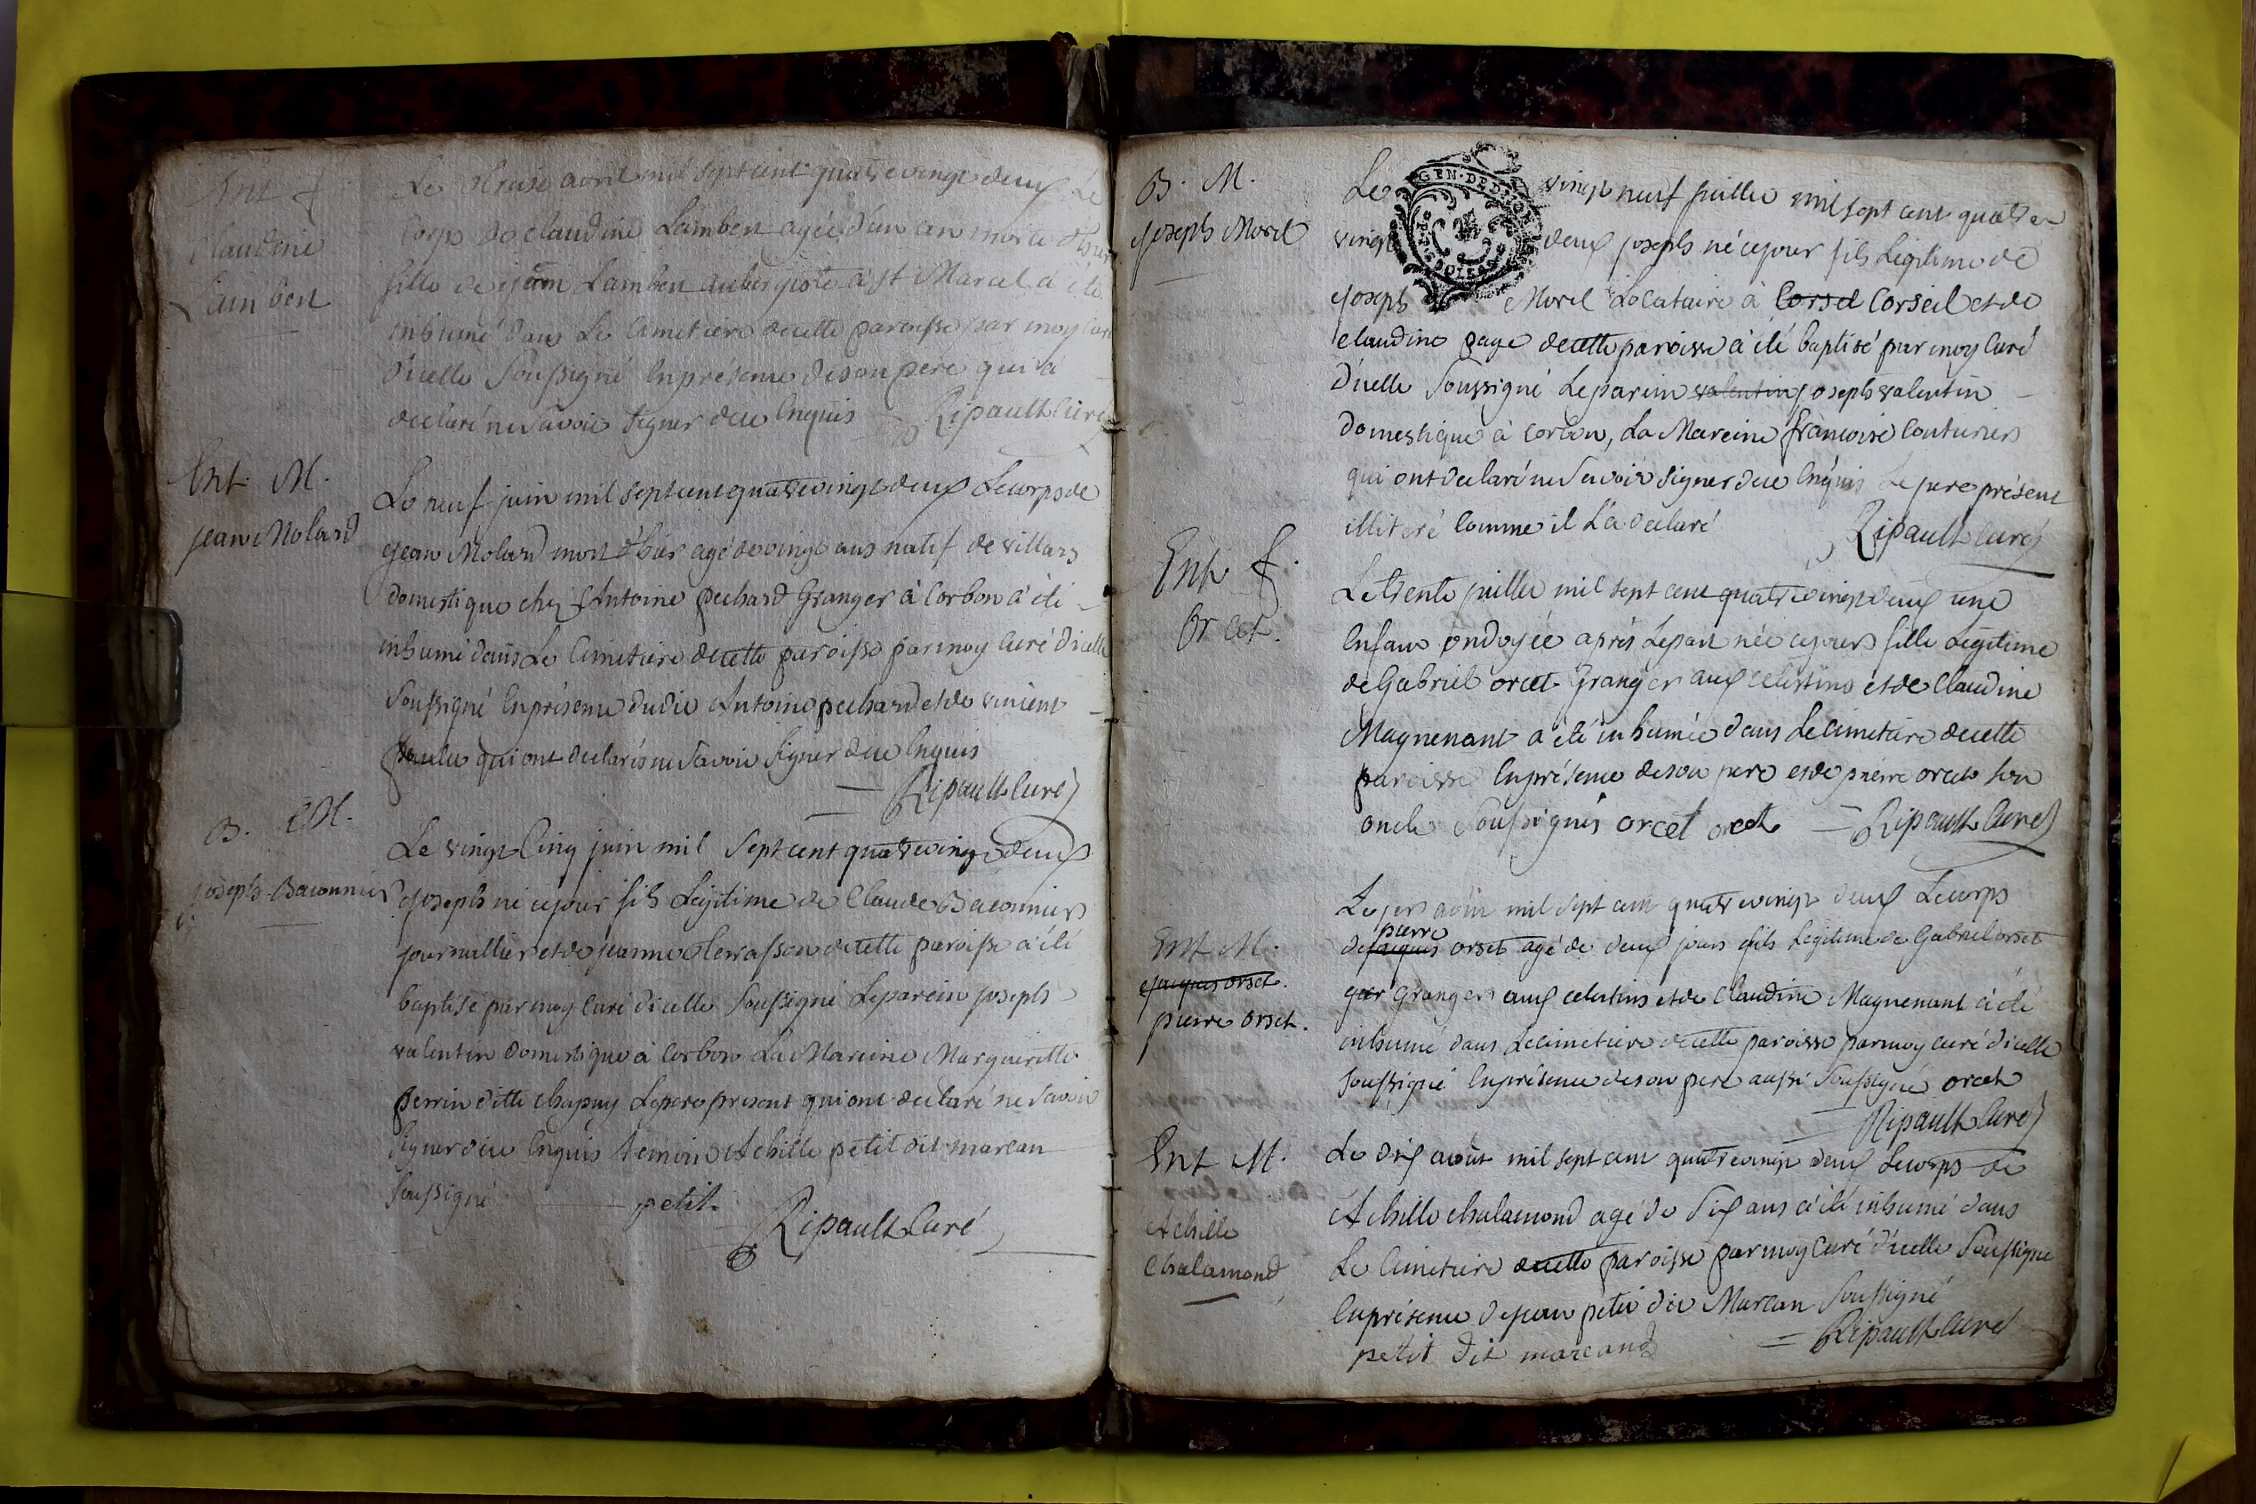 Ent f.
Claudine
Lambert
Le treise avril mil sept cent quatre vingt deux Le
Corps de Claudine Lambert agée d'un an morte d'hier
fille de jean Lambert aubergiste à St Marcel a été
inhumé dans Le Cimetiere decette paroisse par moy Curé
d'icelle Soussigné En presence deson pere qui a
declaré ne savoir signer dece Enquis Ripault Curé
Ent. M.
jean Molard
Le neuf juin mil sept cent quatre vingt deux Lecorps de
jean Molard mort d'hier agé de vingt ans natif de villars
domestique chez Antoine pechard Granger à Corbon a été
inhumé dans Le Cimetiere decette paroisse par moy Curé d'icelle
Soussigné En présence dudit Antoine pechard et de vincent
qui ont declarés ne savoir signer dece Enquis
Ripault Curé
B. M.
joseph Baconnier
Le vingt Cinq juin mil Sept cent quatre vingt deux
joseph né cejour fils Légitime de Claude Baconnier
journallier et de jeanne decette paroisse a été
baptisé par moy Curé d'icelle Soussigné Leparein joseph
valentin domestique à Corbon La Mareine Margueritte
perrin ditte chapuy Lepere present qui ont declaré ne savoir
signer dece Enquis temoin Achille petit dit marcan
Soussigné petit.
Ripault Curé
B. M.
joseph Morel
GEN. DE D
Le vingt neuf juillet mil sept cent quatre
vingt deux joseph né cejour fils Légitime de
joseph Morel Locataire à Corsel Corseil et de
claudine page decette paroisse à été baptisé par moy Curé
d'icelle Soussigné Leparein valentin joseph valentin
domestique à corbon, La Mareine françoise Couturier
qui ont declaré ne savoir signer dece Enquis Le pere présent
illiteré Comme il L'a declaré Ripault Curé
Ent. f.
Orcet.
Le trente juillet mil sept cent quatre vingt deux une
Enfant ondoyée après Lepart née cejour fille Légitime
de Gabriel orcet Granger aux celestins et de Claudine
Magnenant a été inhumée dans Le cimetiere decette
paroisse En présence deson pere et de pierre orcet son
oncle Soussignés orcet orcet Ripault Curé
Ent M.
jacques orset.
pierre orset.
Le 1er août mil sept cent quatre vingt deux Lecorps
pierre
de jacques orset agé de deux jours fils Légitime de Gabriel orset
ger Granger aux celestins et de Claudine Magnenant à été
inhumé dans Lecimetiere decette paroisse par moy curé d'icelle
soussigné En présence deson pere aussi Soussigné orcet
Ripault Curé
Ent M.
Achille
Chalamond
Le dix août mil sept cent quatre vingt deux Lecorps de
Achille chalamond agé de six ans a été inhumé dans
Le Cimetiere decette paroisse par moy Curé d'icelle Soussigné
En présence de jean petit dit Marcan Soussigné
petit dit marcand Ripault Curé